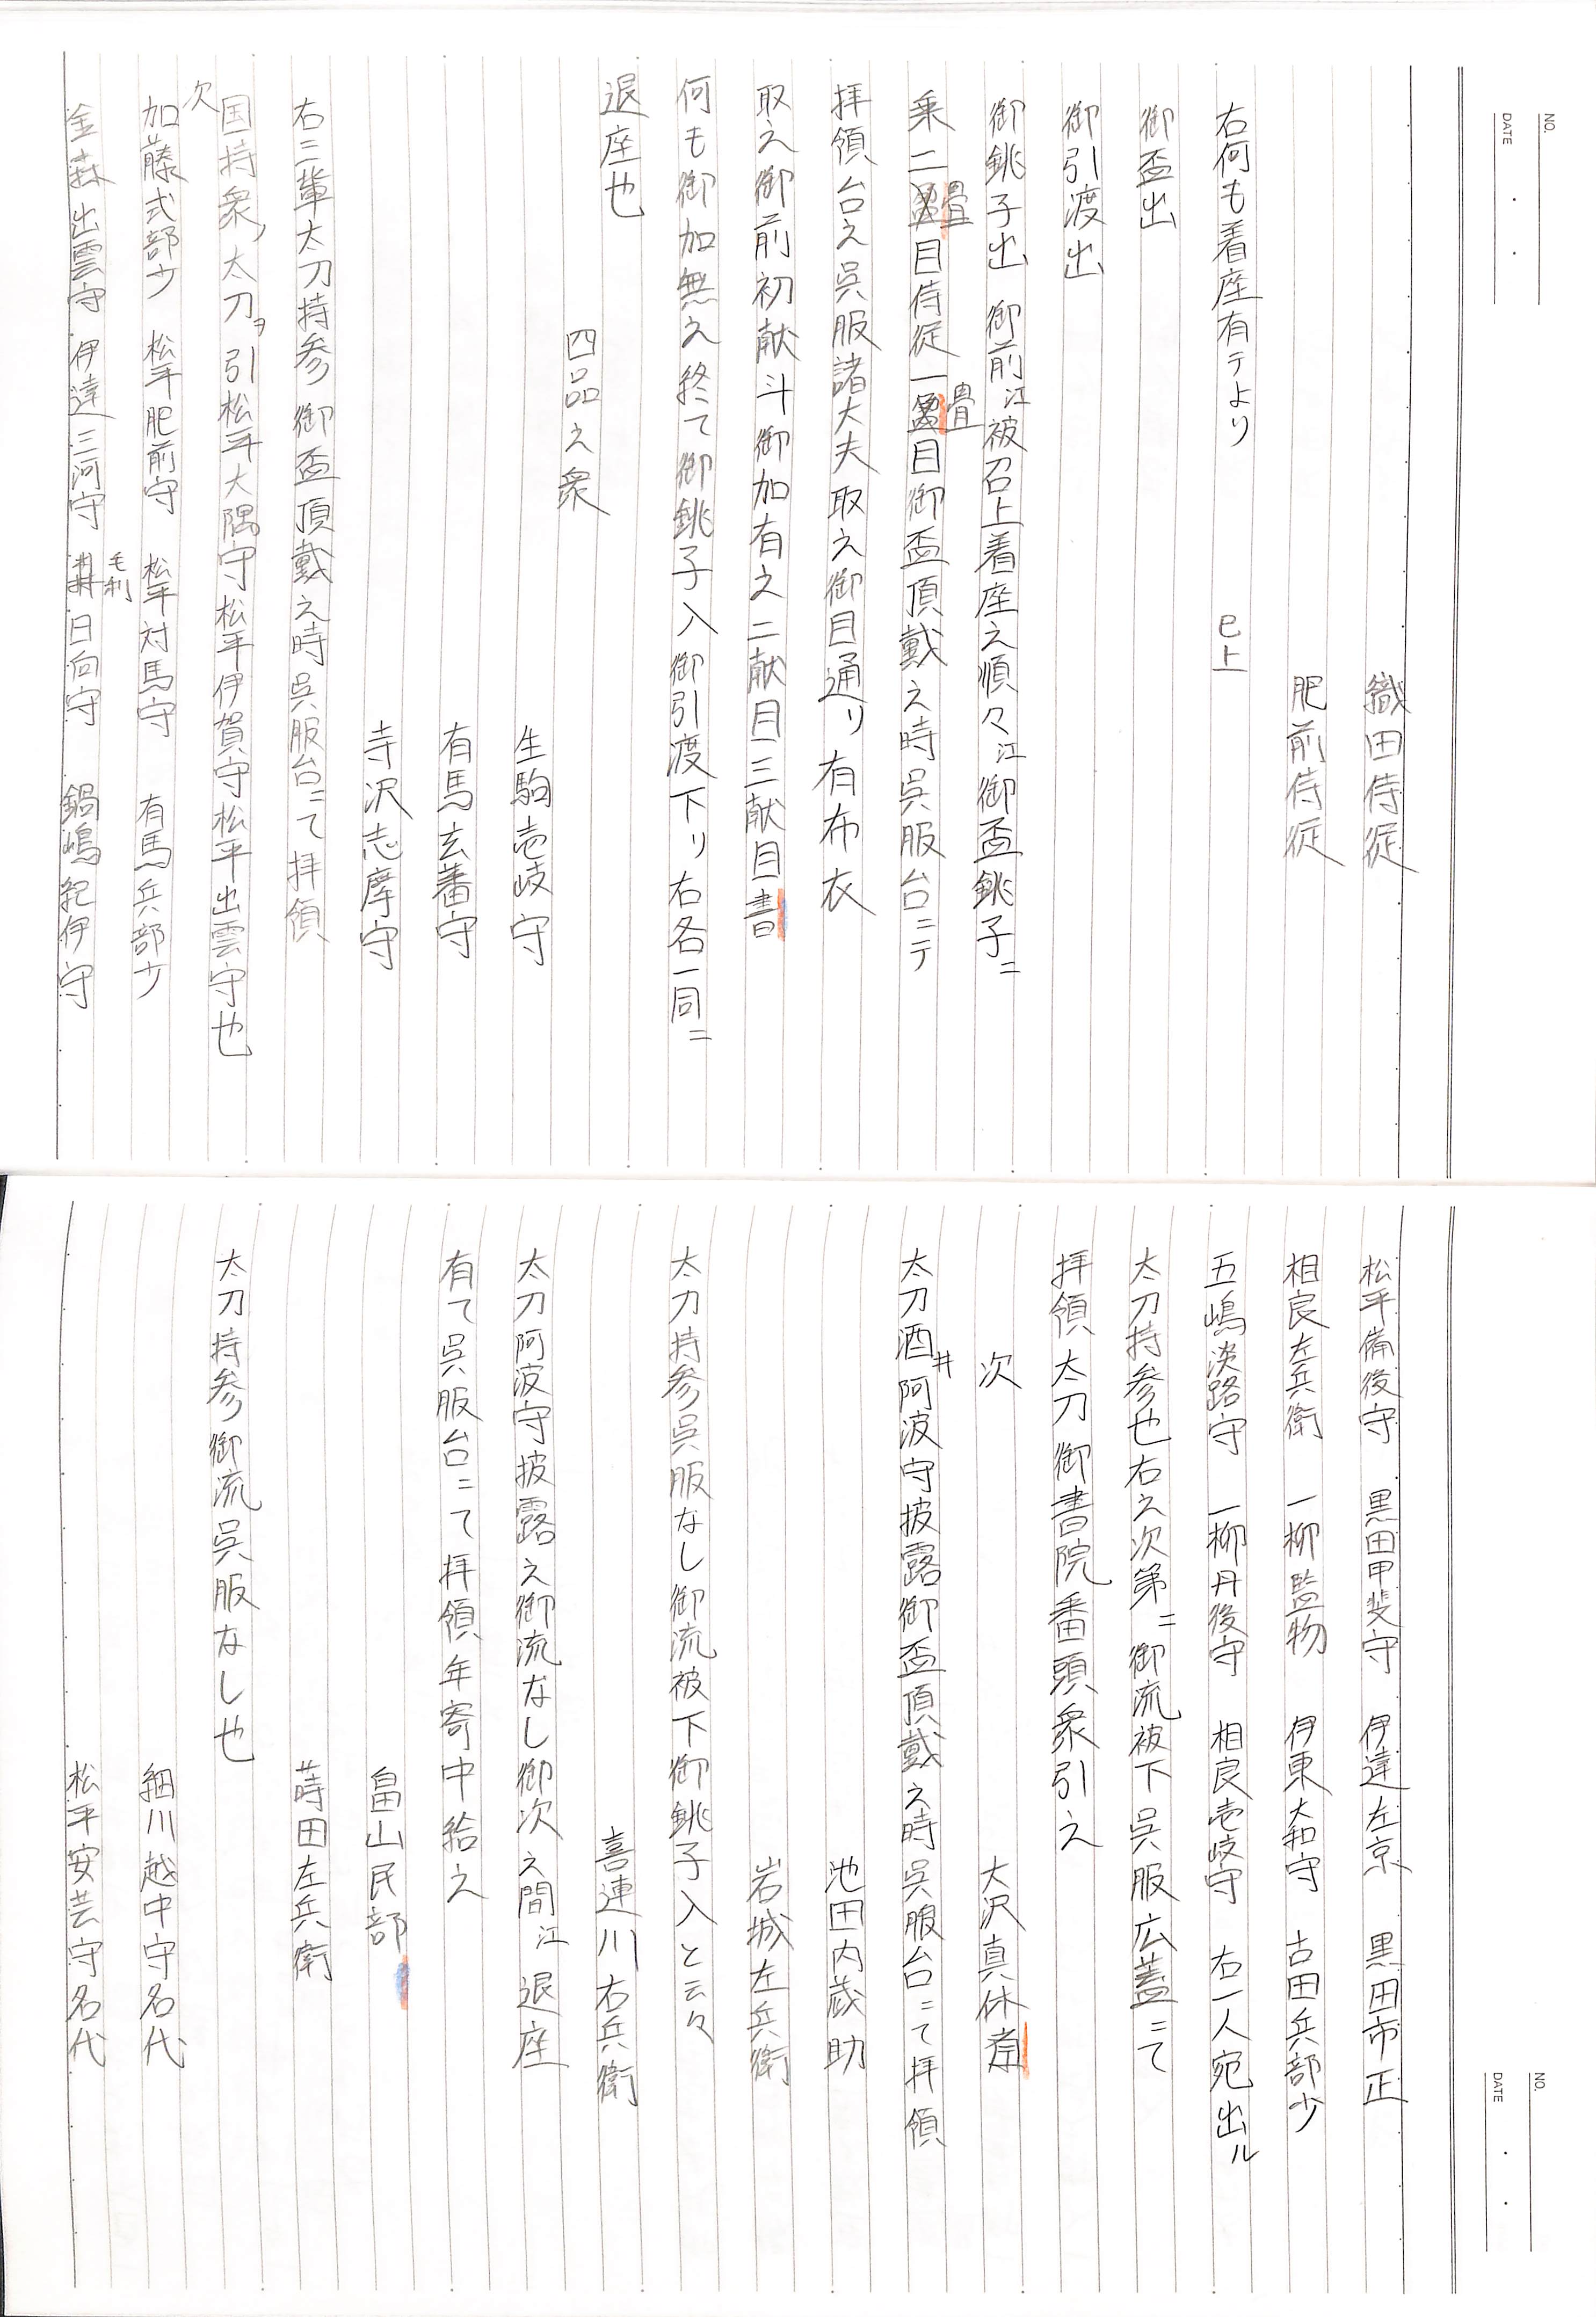 NO.
DATE
織田侍従
肥前侍従
右何も着座有テより 已上
御盃出
御引渡出
御銚子出 御前江被召上着座之順々江御盃銚子ニ
乗二畳目侍従一畳目御盃頂戴之時呉服台ニテ
拝領台之呉服諸大夫取之御目通リ有布衣
取之御前初献斗御加有之二献目三献目書
何も御加無之終て御銚子入御引渡下リ右各一同ニ
退座也
四品之衆
生駒壱岐守
有馬玄蕃守
寺沢志摩守
右三輩太刀持参御盃頂戴之時呉服台ニて拝領
国持衆ノ太刀ヲ引松平大隅守松平伊賀守松平出雲守也
次
加藤式部少 松平肥前守 松平対馬守 有馬兵部少
金森出雲守 伊達三河守 毛利日向守 鍋嶋紀伊守
NO.
DATE
松平備後守 黒田甲斐守 伊達左京 黒田市正
相良左兵衛 一柳監物 伊東大和守 古田兵部少
五嶋淡路守 一柳丹後守 相良壱岐守 右一人宛出ル
太刀持参也右之次第ニ御流被下呉服広蓋ニて
拝領太刀御書院番頭衆引之
次 大沢真休斎
太刀酒井阿波守披露御盃頂戴之時呉服台ニて拝領
池田内蔵助
岩城左兵衛
太刀持参呉服なし御流被下御銚子入と云々
喜連川右兵衛
太刀阿波守披露之御流なし御次之間江退座
有て呉服台ニて拝領年寄中給之
畠山民部
蒔田左兵衛
太刀持参御流呉服なし也
細川越中守名代
松平安芸守名代